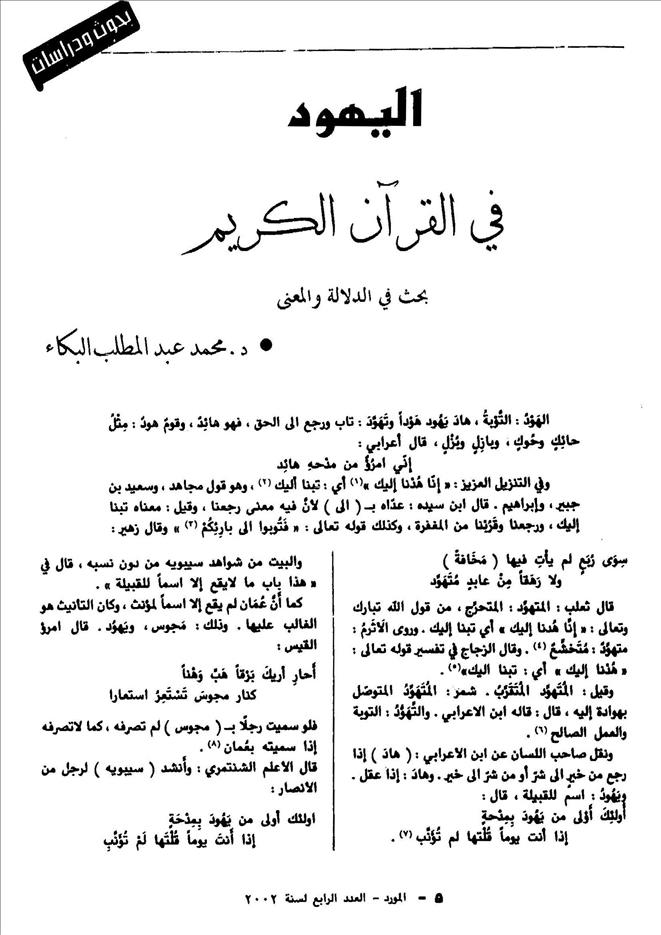 بحوث ودراسات
اليهود
في القرآن الكريم
بحث في الدلالة والمعنى
● د. محمد عبد المطلب البكاء
الهَوْدُ : التَّوْبةُ ، هادَ يَهُود هَوْداً وتَهَوَّدَ : تاب ورجع الى الحق ، فهو هائِدُ ، وقوم هودُ : مِثْلُ
حائِكٍ وحُوكٍ ، وبازِلٍ وبُزْلٍ ، قال أعرابي :
إنّي امرُؤٌ من مدْحهِ هائِد
وفي التنزيل العزيز : « إنّا هُدْنا إليك »(١) أي : تبنا أليك (٢) ، وهو قول مجاهد ، وسعيد بن
جبير ، وإبراهيم . قال ابن سيده : عدّاه بـ ( الى ) لأنَّ فيه معنى رجعنا ، وقيل : معناه تبنا
إليك ، ورجعنا وقَرُبْنا من المغفرة ، وكذلك قوله تعالى : « فَتُوبوا الى بارئِكُمْ (٣) » وقال زهير :
سِوَى رُبَعٍ لم يأتِ فيها ( مَخَافةً )
ولا رَهَقاً مِنْ عابدٍ مُتَهَوِّد
قال ثعلب : المتهوِّد : المتحرِّج ، من قول الله تبارك
وتعالى : « إنّا هُدنا إليك » أي تبنا إليك . وروى الاثرمُ :
متهوِّدٌ : مُتَخشِّعٌ (٤) . وقال الزجاج في تفسير قوله تعالى :
« هُدْنا إليك » أي : تبنا اليك»(٥) .
وقيل : المُتَهوِّد المُتقرِّبُ . شمر : المُتَهَوِّدُ المتوصّل
بهوادة إليه ، قال : قاله ابن الاعرابي . والتَّهَوُّدُ : التوبة
والعمل الصالح (٦) .
ونقل صاحب اللسان عن ابن الاعرابي : ( هادَ ) إذا
رجع من خيرٍ الى شرّ أو من شرّ الى خير . وهادَ : إذا عقل .
ويَهُودُ : اسمٌ للقبيلة ، قال :
أُولئِكَ أَوْلى من يَهُودَ بِمِدْحةٍ
إذا أنت يوماً قُلْتَها لم تُؤَنَّبِ (٧) .
والبيت من شواهد سيبويه من دون نسبه ، قال في
« هذا باب ما لايقع إلا اسماً للقبيلة » .
كما أنَّ عُمَان لم يقع إلا اسماً لمؤنث ، وكان التانيث هو
الغالب عليها . وذلك : مَجوس ، ويَهُود . قال امرؤ
القيس :
أَحارِ أريكَ بَرْقاً هَبَّ وَهْناً
كنار مجوسَ تَسْتَعِرُ استعارا
فلو سميت رجلًا بـ ( مجوس ) لم تصرفه ، كما لاتصرفه
إذا سميته بعُمان (٨) .
قال الأعلم الشنتمري : وأنشد ( سيبويه ) لرجل من
الأنصار :
اولئك أولى من يَهُودَ بِمِدْحَةٍ
إذا أَنتَ يوماً قُلْتَها لَمْ تُؤَنَّبِ
٥ - المورد - العدد الرابع لسنة ٢٠٠٢